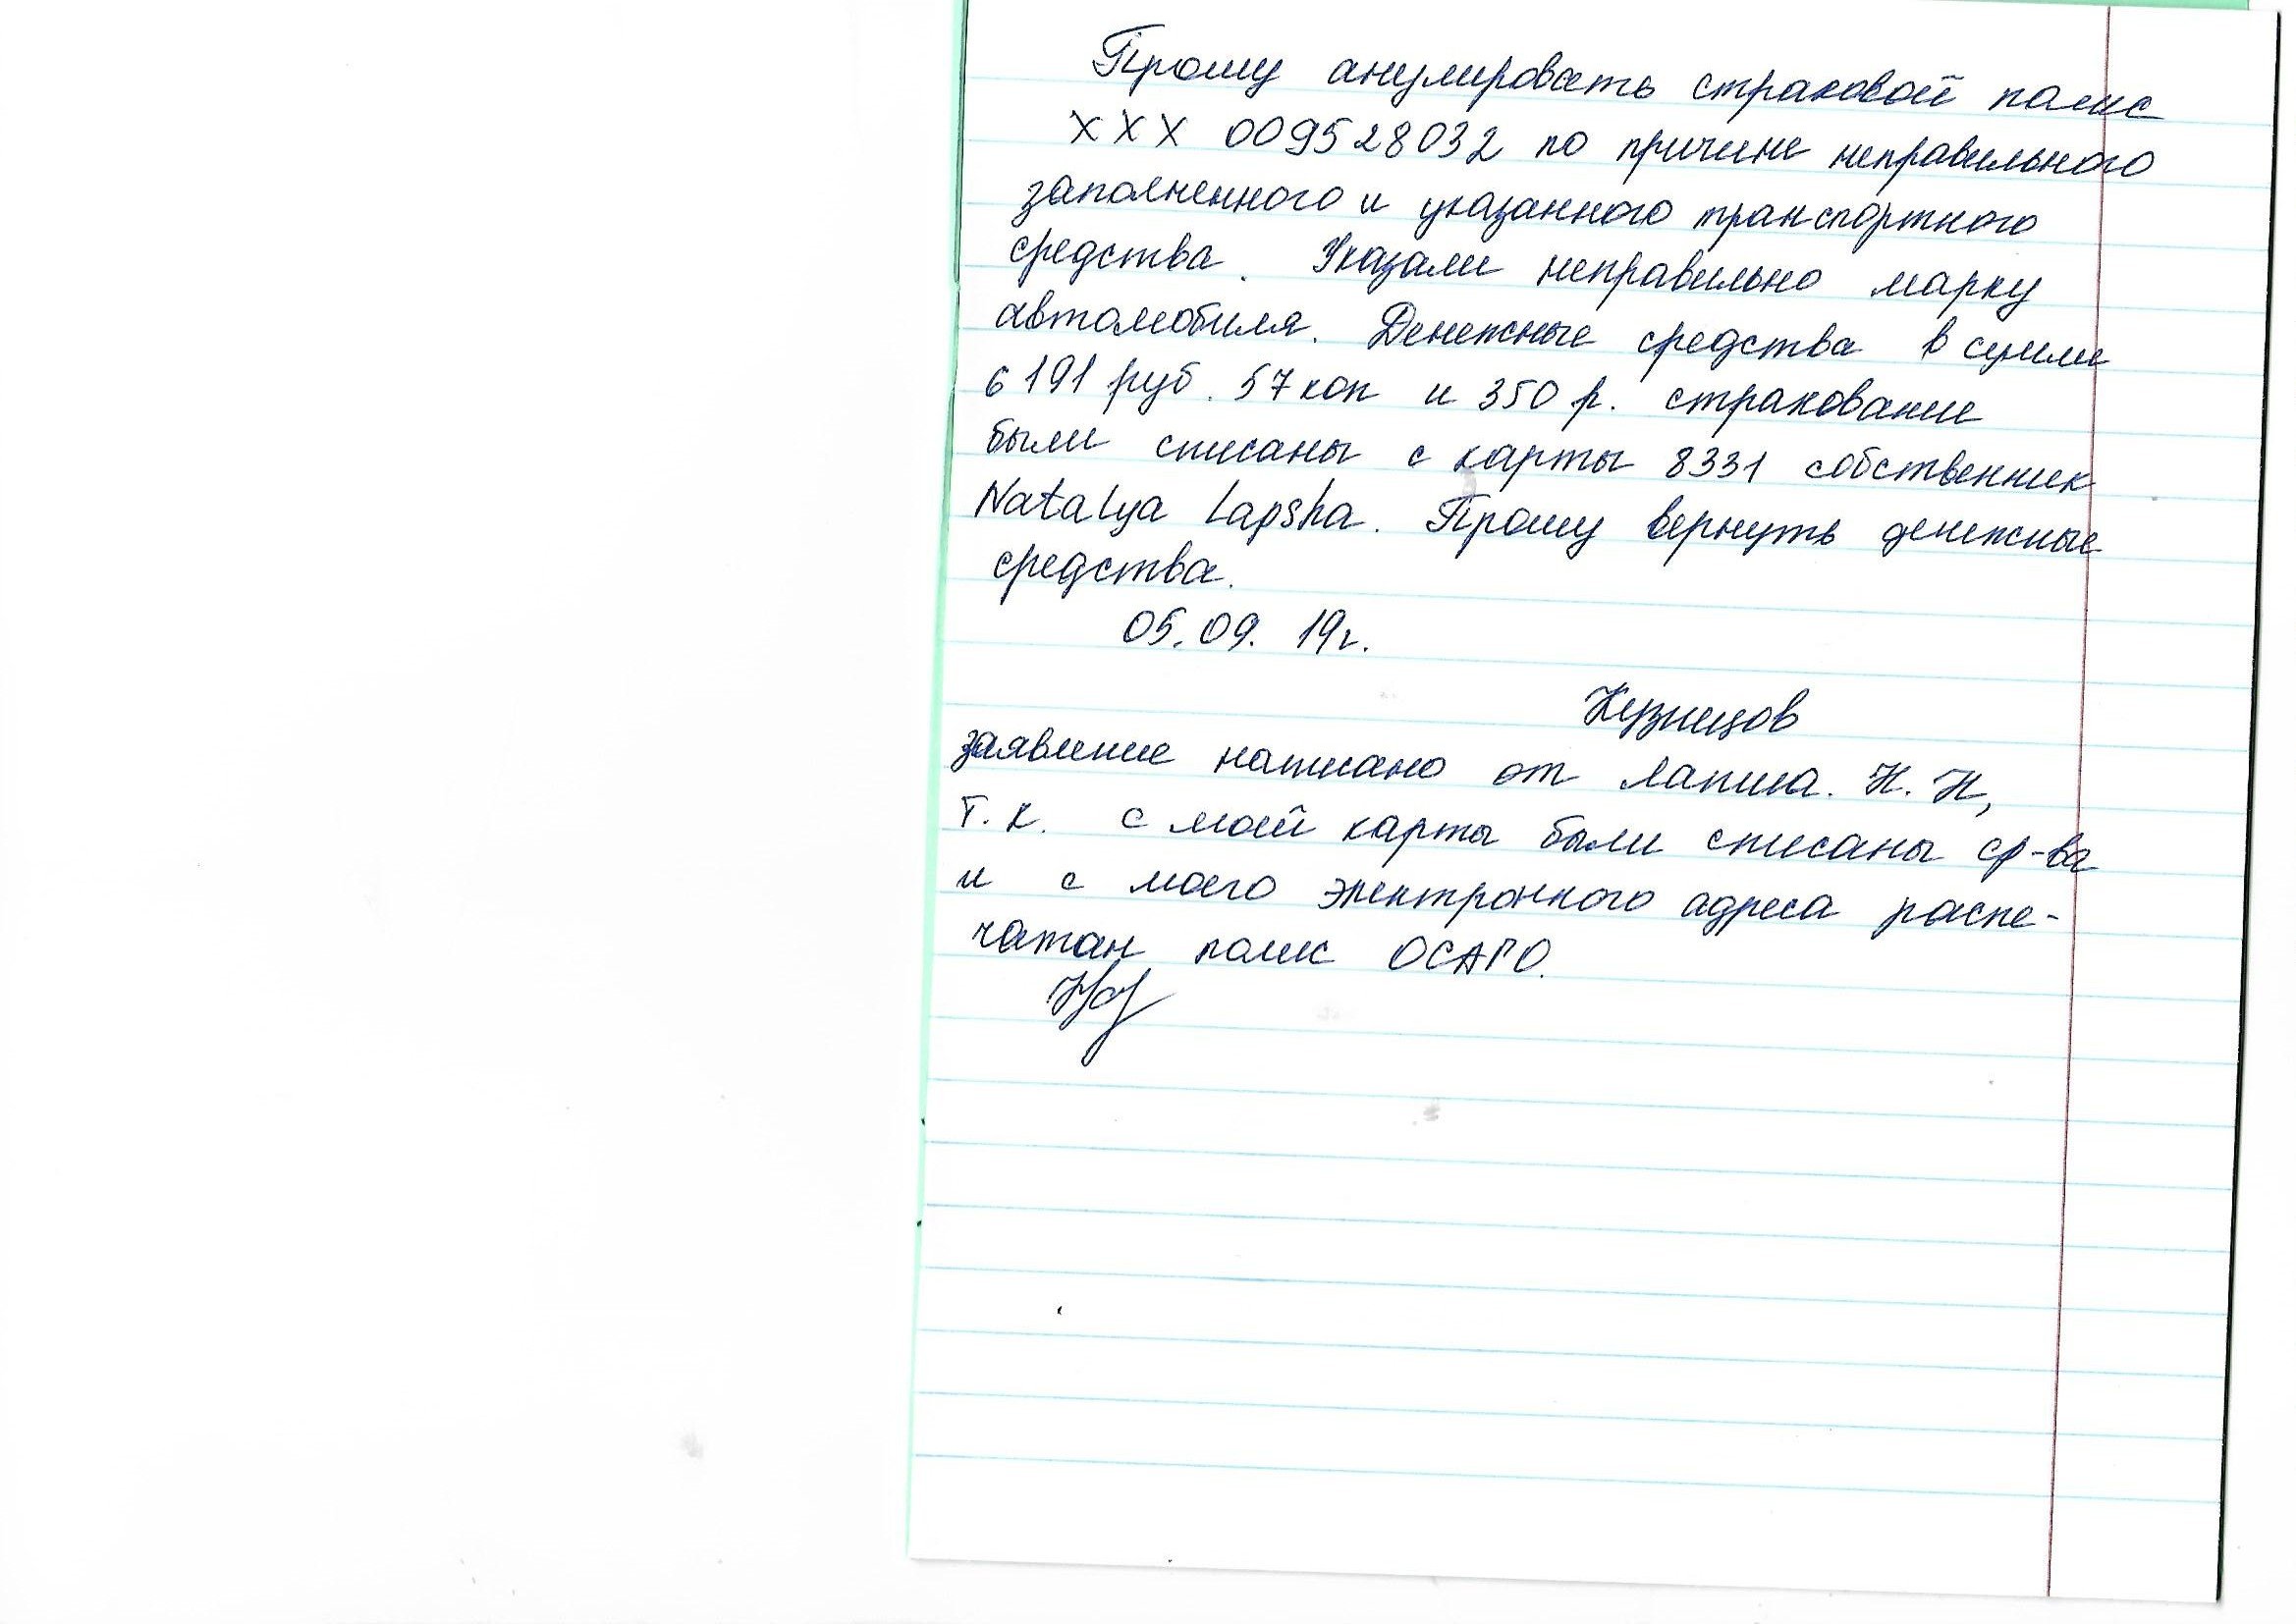 Прошу анулировать страховой полис
ХХХ 009528032 по причине неправильного
заполненного и указанного транспортного
средства. Указали неправильно марку
автомобиля. Денежные средства в сумме
6191 руб. 57 коп и 350 р. страхование
были списаны с карты 8331 собственник
Natalya Lapsha. Прошу вернуть денежные
средства.
05.09.19г.
Кузнецов
заявление написано от Лапша. Н. Н,
т.к. с моей карты были списаны ср-ва
и с моего электронного адреса распе-
чатан полис ОСАГО.